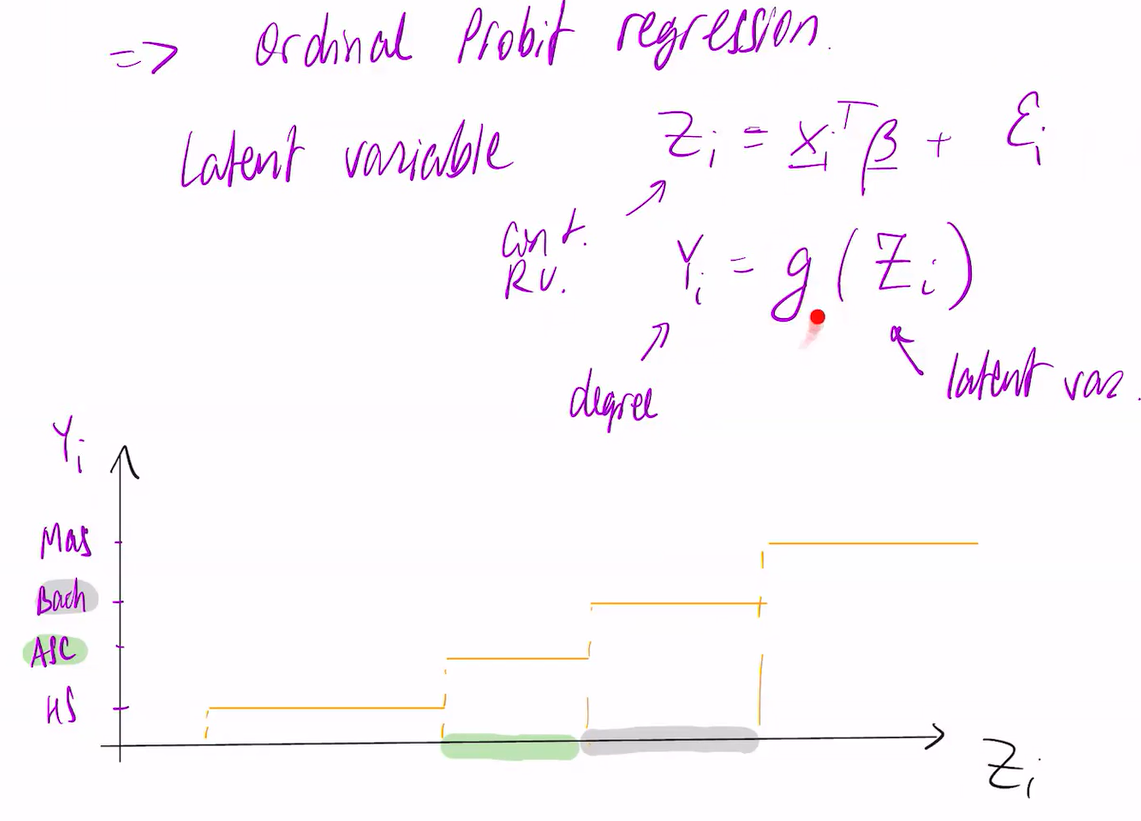 => Ordinal Probit regression.
Latent variable Z_i = x_i^T β + ε_i
cont. R.V.
Y_i = g(Z_i)
degree
latent var.
Y_i
Mas
Bach
ASC
HS
Z_i